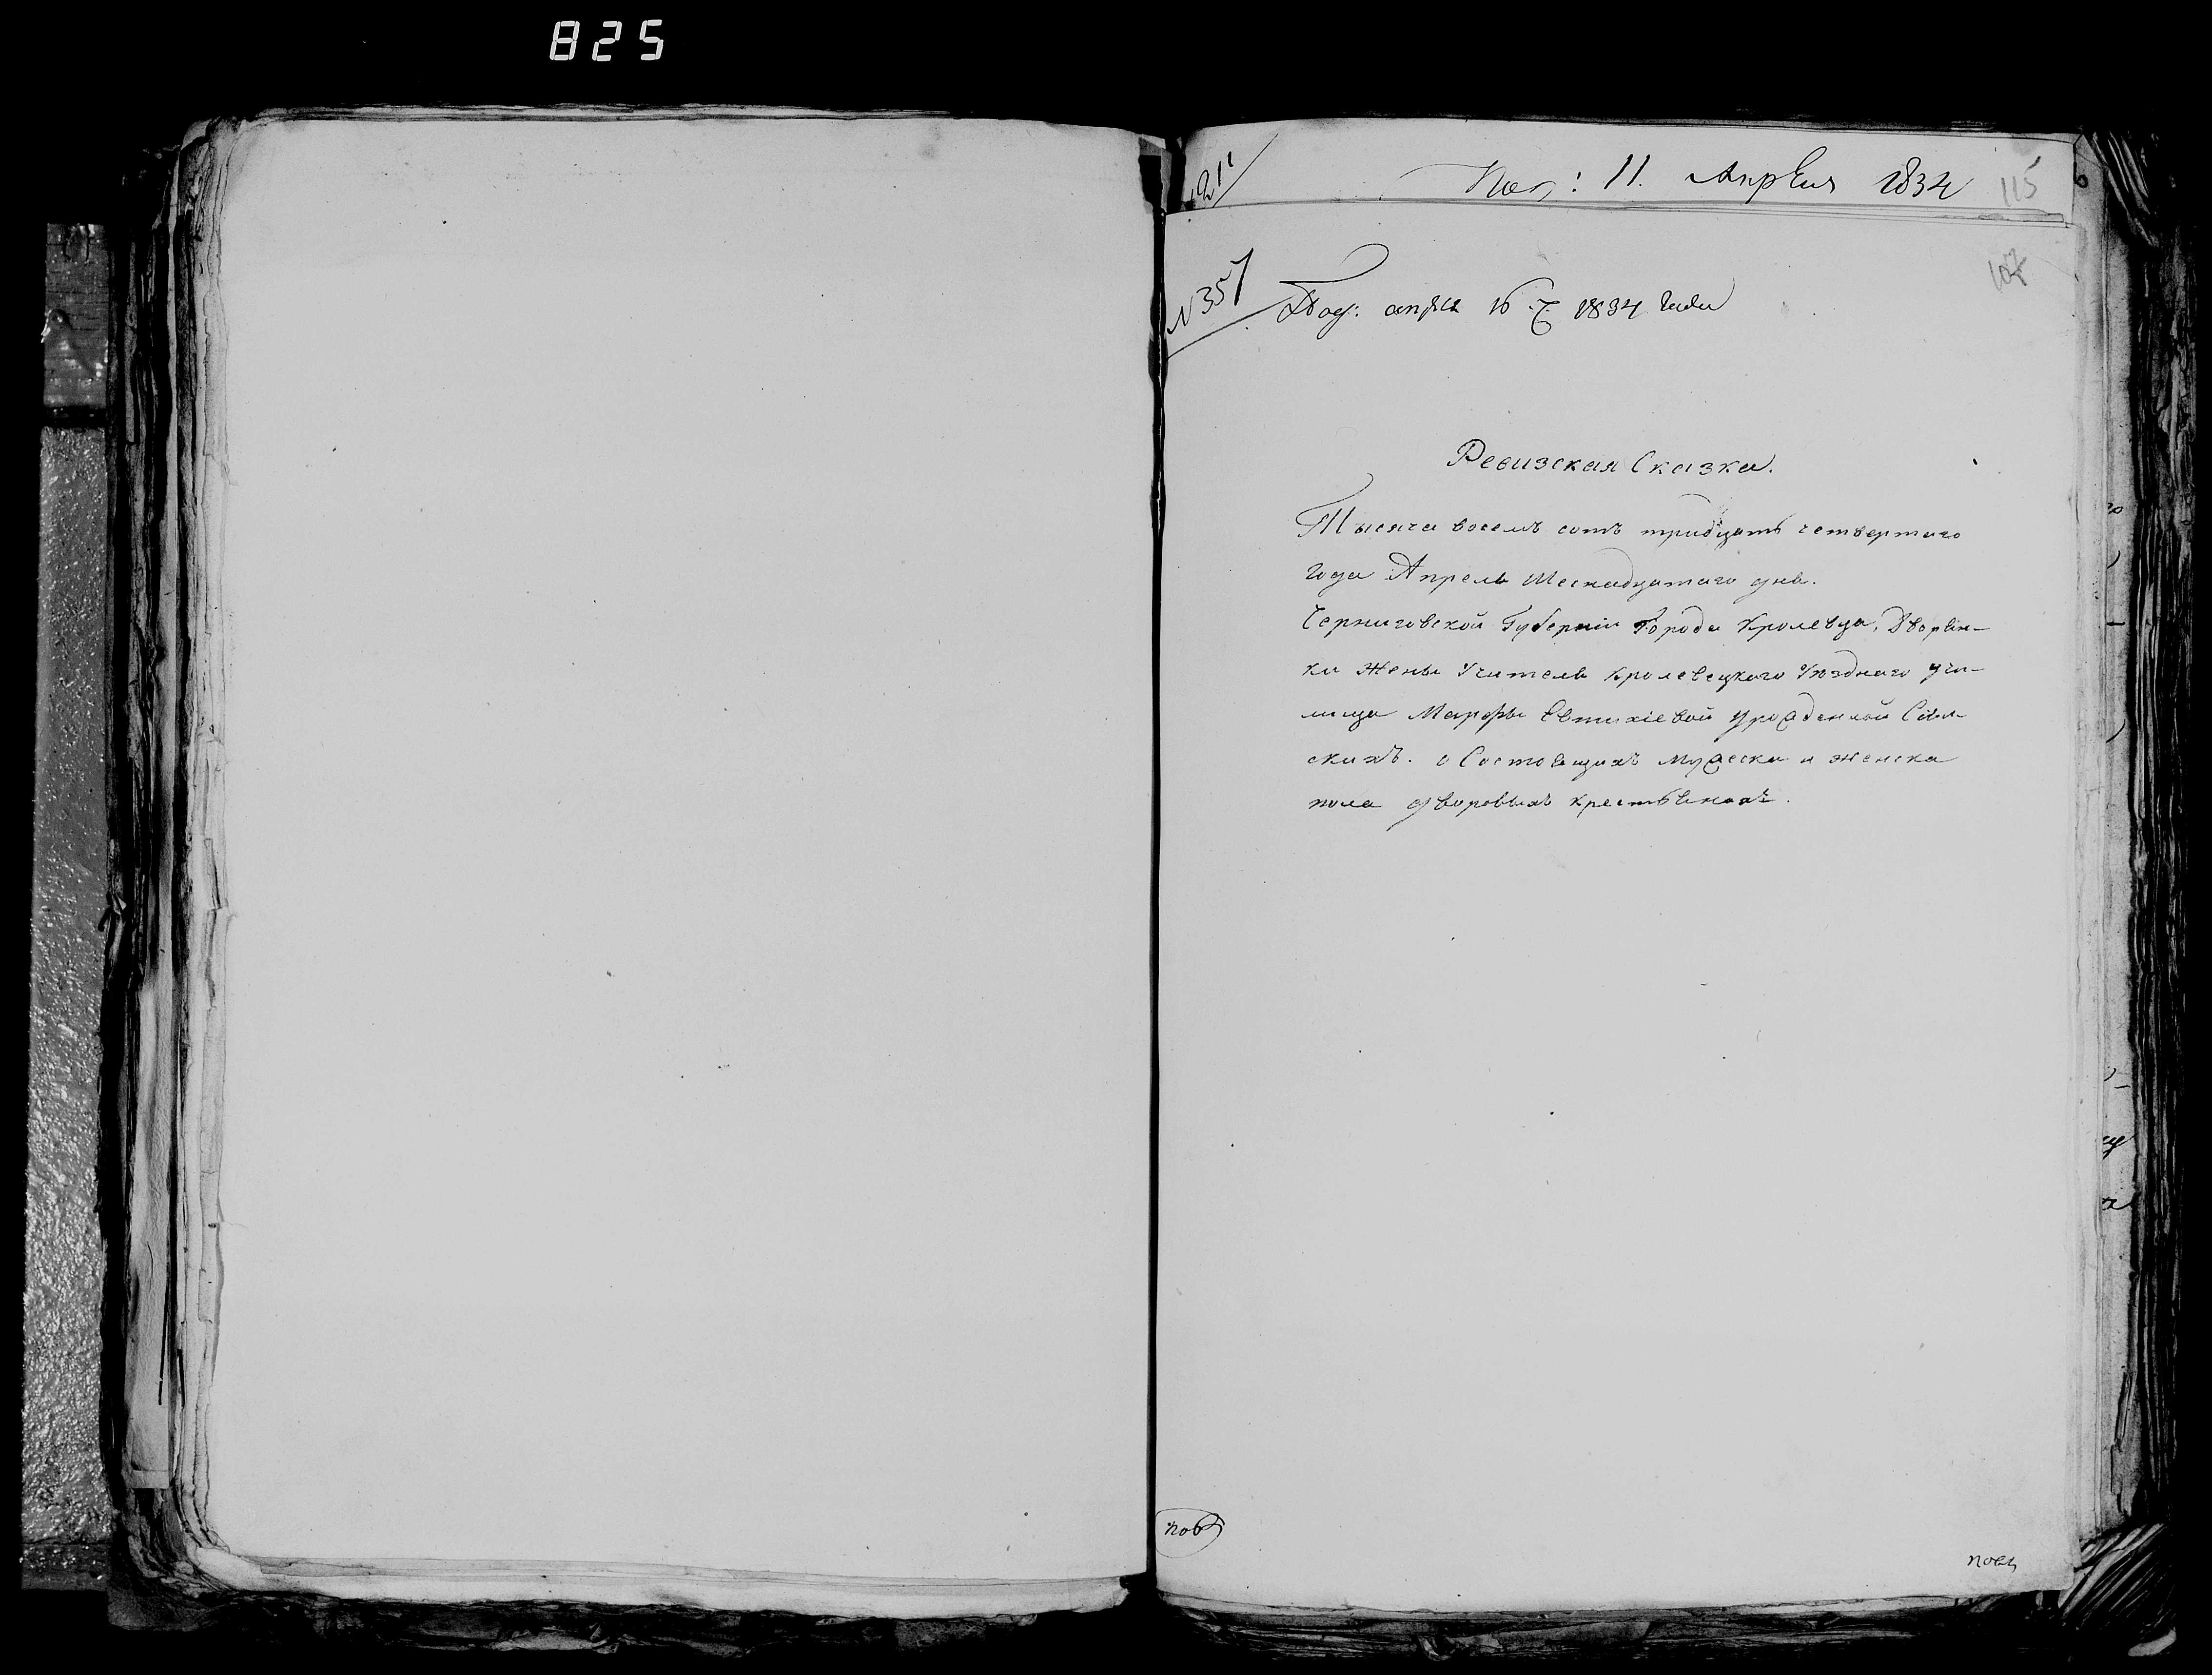 825
Пол: 11. Апреля 1834
115
107
№357
Под: апреля 16 1834 года
Ревизская Сказка.
Тысяча восемъ сотъ тридцать четвертаго
года Апреля Шеснадцатаго дня.
Черниговской Губерніи Города Кролевца, Дворян-
ки Жены Учителя Кролевецкого Уезднаго учи-
лища Марфы Евтихіевой урожденной
скихъ. о Состоящихъ мужеска и женска
пола дворовыхъ крестьянахъ.
пов
повѣ